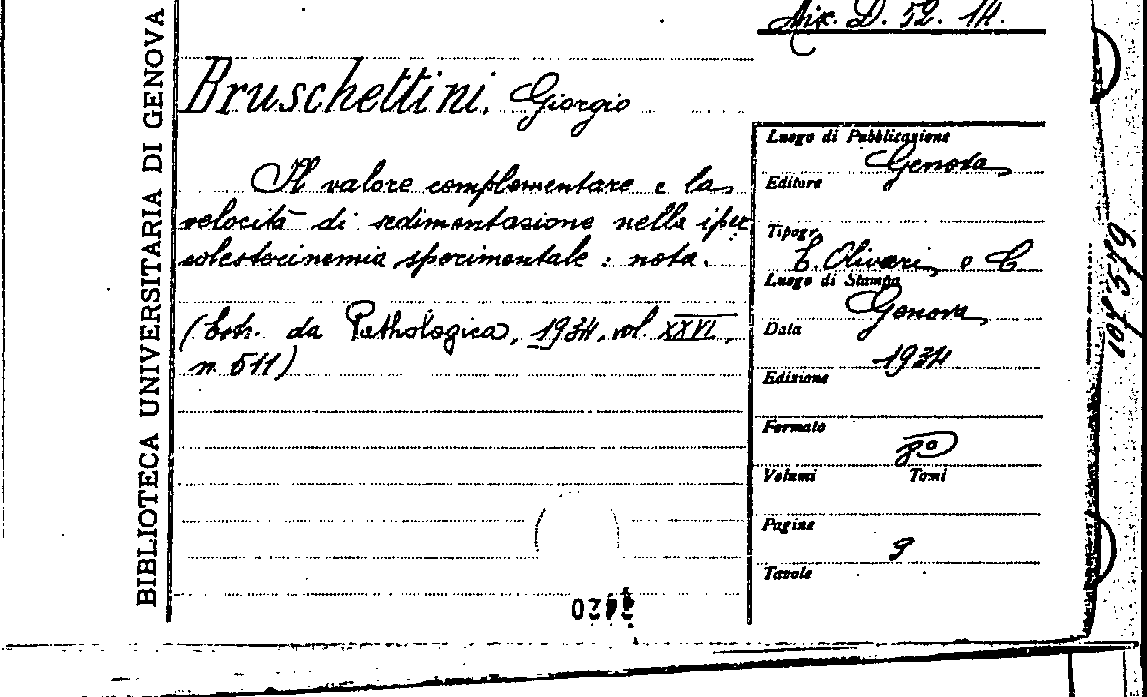 BIBLIOTECA UNIVERSITARIA DI GENOVA
Mix. D. 52. 14.
Bruschettini, Giorgio
Il valore complementare e la
velocità di sedimentazione nella iper
colesterinemia sperimentale : nota.
(Estr. da Pathologica, 1934, vol XXVI,
n. 511)
Luogo di Pubblicazione
Genova
Editore
Tipogr.
E. Olivieri e C
Luogo di Stampa
Genova
Data
1934
Edizione
Formato
8º
Volumi Tomi
Pagine
9
Tavole
107579